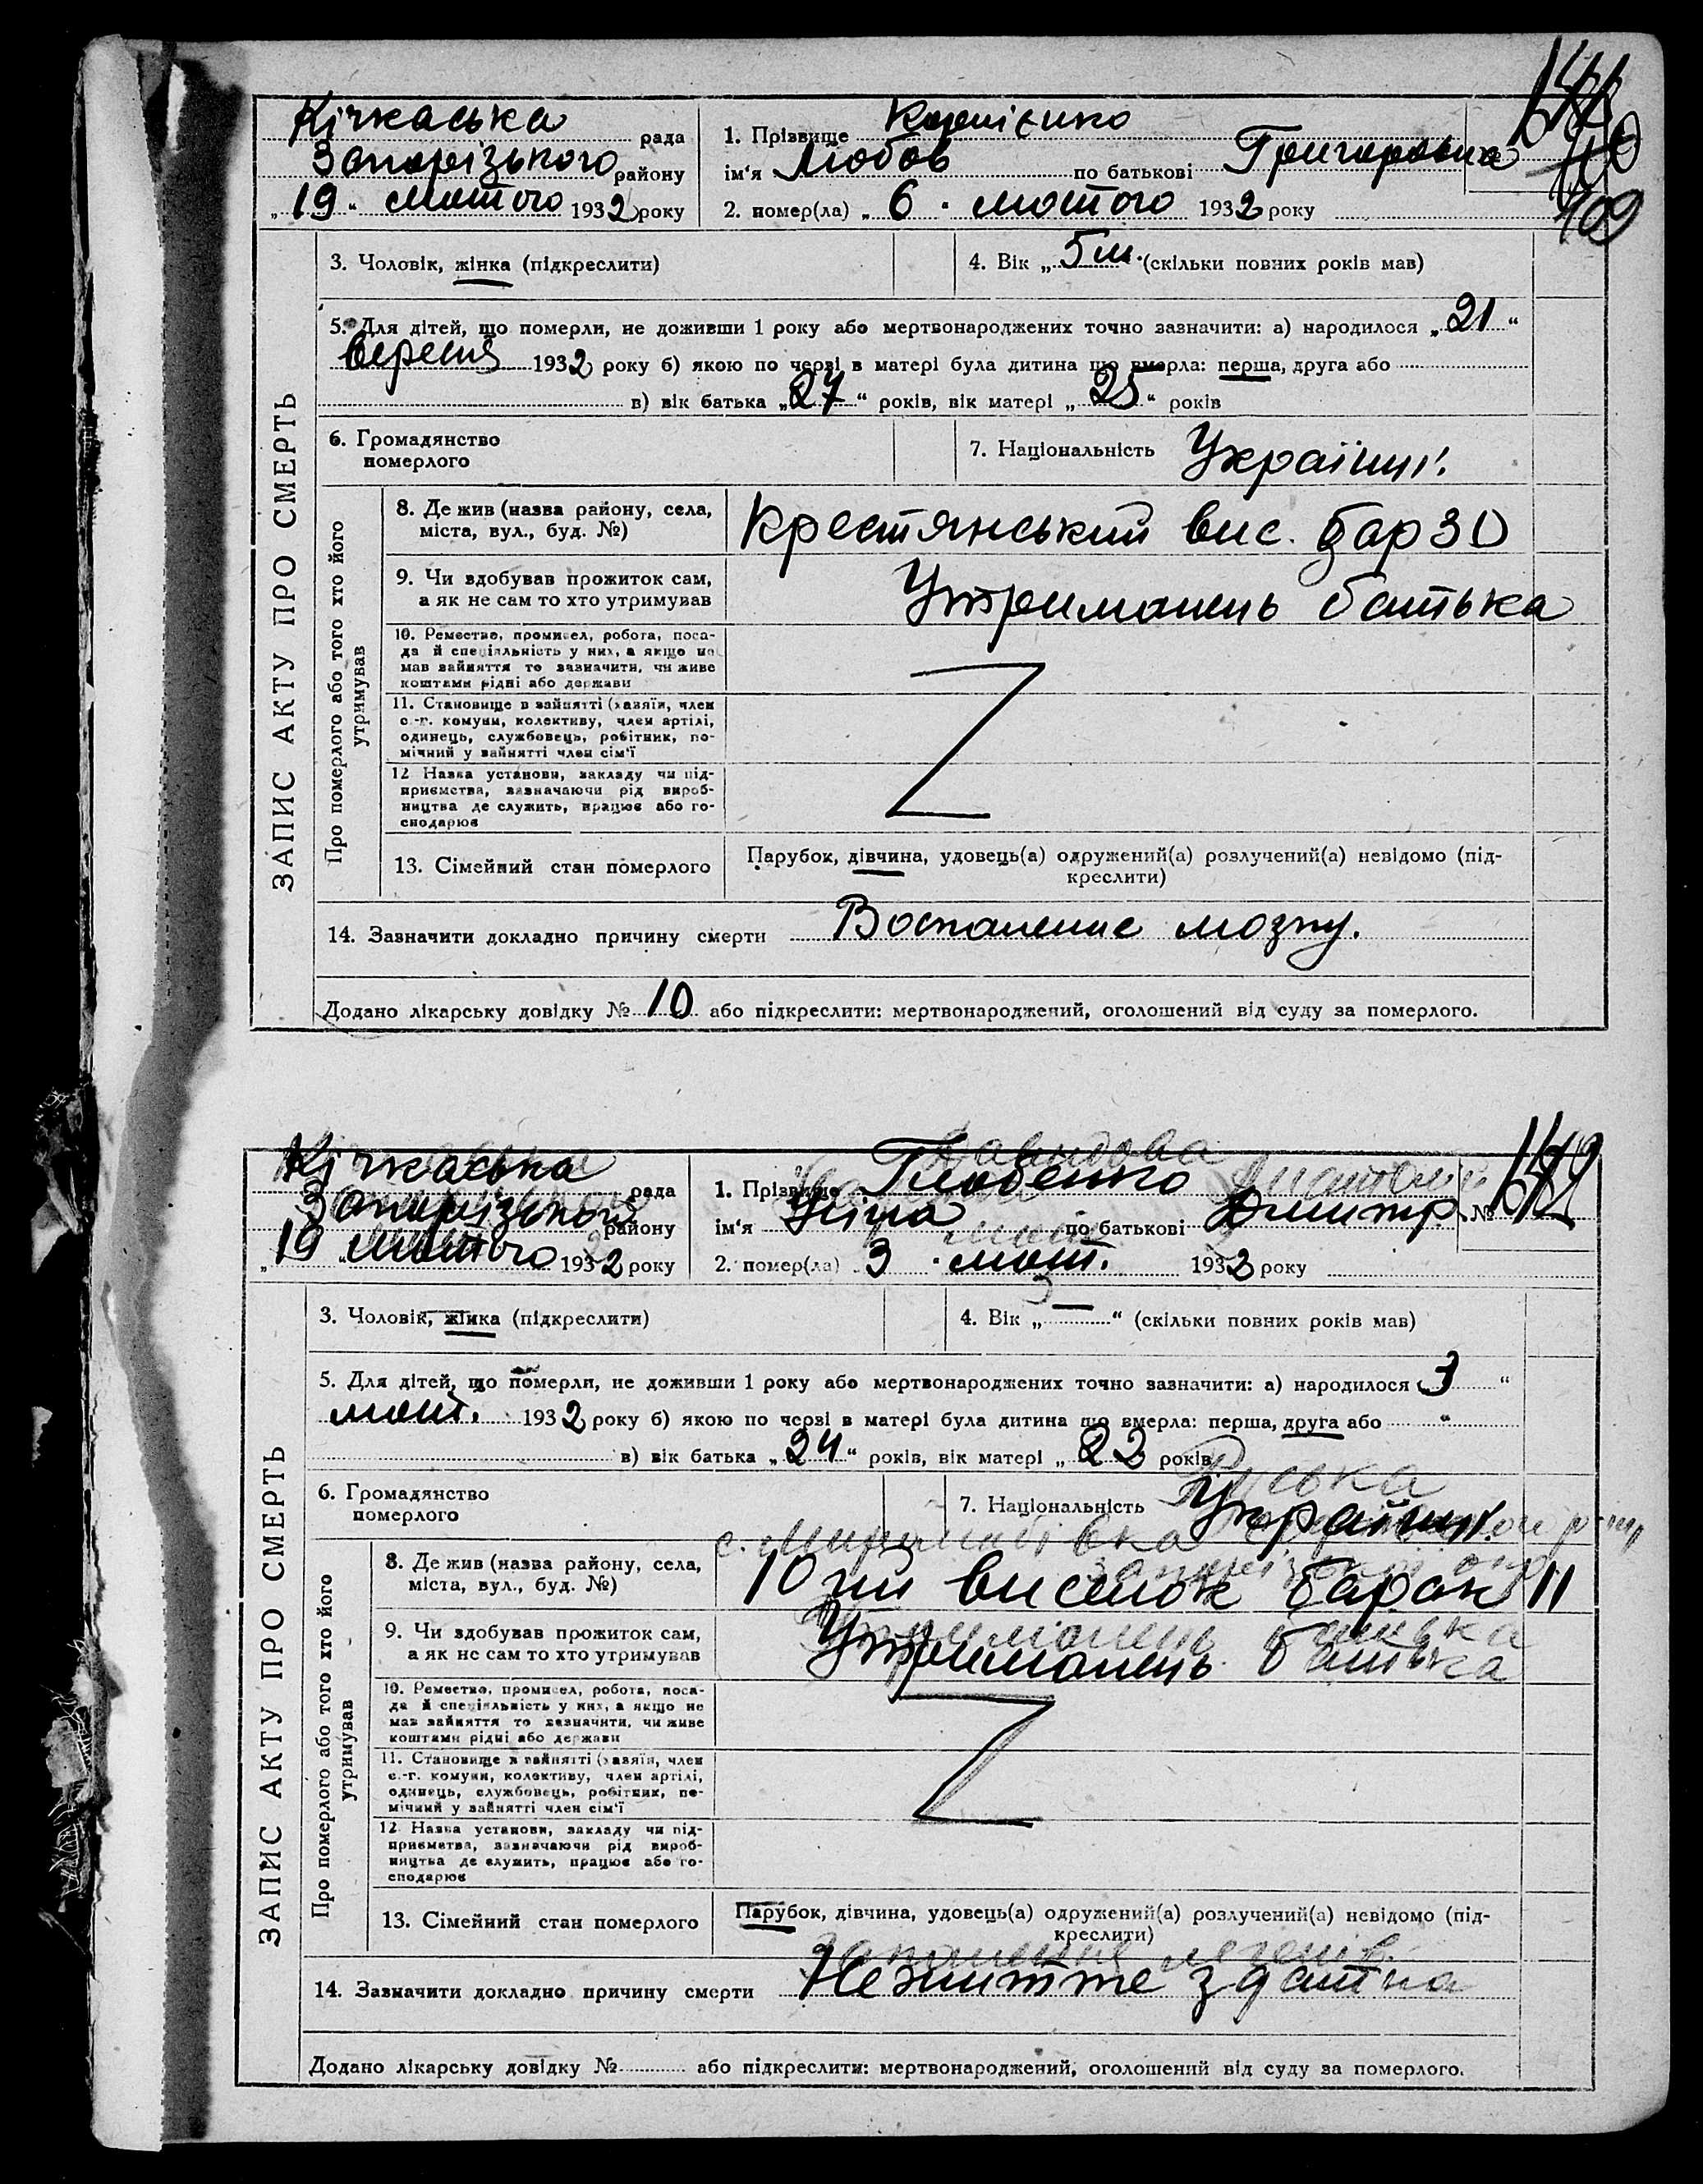 Кічкаська рада
Запорізького району
„19“ лютого 1932 року
1. Прізвище Корнієнко
ім'я Любов по батькові Григоровна
2. помер(ла) „6“ лютого 1932 року
109
3. Чоловік, жінка (підкреслити)
4. Вік „5 м.“ (скільки повних років мав)
5. Для дітей, що померли, не доживши 1 року або мертвонароджених точно зазначити: а) народилося „21“
вересня 1932 року б) якою по черзі в матері була дитина що вмерла: перша, друга або
в) вік батька „27“ років, вік матері „25“ років
6. Громадянство
померлого
7. Національність Українц.
ЗАПИС АКТУ ПРО СМЕРТЬ
Про померлого або того хто його
утримував
8. Де жив (назва району, села,
міста, вул., буд. №)
Крестянський вис. бар 30
9. Чи здобував прожиток сам,
а як не сам то хто утримував
Утриманець батька
10. Ремество, промисел, робота, поса-
да й спеціяльність у них, а якщо не
мав зайняття то зазначити, чи живе
коштами рідні або держави
11. Становище в зайнятті (хазяїн, член
с.-г. комуни, колективу, член артілі,
одинець, службовець, робітник, по-
мічний у зайнятті член сім'ї
12 Назва установи, закладу чи під-
приємства, зазначаючи рід вироб-
ництва де служить, працює або го-
сподарює
13. Сімейний стан померлого
Парубок, дівчина, удовець(а) одружений(а) розлучений(а) невідомо (під-
креслити)
14. Зазначити докладно причину смерти Воспаление мозгу.
Додано лікарську довідку № 10 або підкреслити: мертвонароджений, оголошений від суду за померлого.
Кічкаська рада
Запорізького району
„19“ лютого 1932 року
1. Прізвище Глобенко
ім'я Ніна по батькові Дмитр. №
2. помер(ла) „3“ лют. 1932 року
3. Чоловік, жінка (підкреслити)
4. Вік „—“ (скільки повних років мав)
5. Для дітей, що померли, не доживши 1 року або мертвонароджених точно зазначити: а) народилося „3“
лют. 1932 року б) якою по черзі в матері була дитина що вмерла: перша, друга або
в) вік батька „24“ років, вік матері „22“ років
6. Громадянство
померлого
7. Національність Українц.
ЗАПИС АКТУ ПРО СМЕРТЬ
Про померлого або того хто його
утримував
8. Де жив (назва району, села,
міста, вул., буд. №)
10 ий виселок барак 11
9. Чи здобував прожиток сам,
а як не сам то хто утримував
Утриманець батька
10. Ремество, промисел, робота, поса-
да й спеціяльність у них, а якщо не
мав зайняття то зазначити, чи живе
коштами рідні або держави
11. Становище в зайнятті (хазяїн, член
с.-г. комуни, колективу, член артілі,
одинець, службовець, робітник, по-
мічний у зайнятті член сім'ї
12 Назва установи, закладу чи під-
приємства, зазначаючи рід вироб-
ництва де служить, працює або го-
сподарює
13. Сімейний стан померлого
Парубок, дівчина, удовець(а) одружений(а) розлучений(а) невідомо (під-
креслити)
14. Зазначити докладно причину смерти Нежиттєздатна
Додано лікарську довідку № або підкреслити: мертвонароджений, оголошений від суду за померлого.